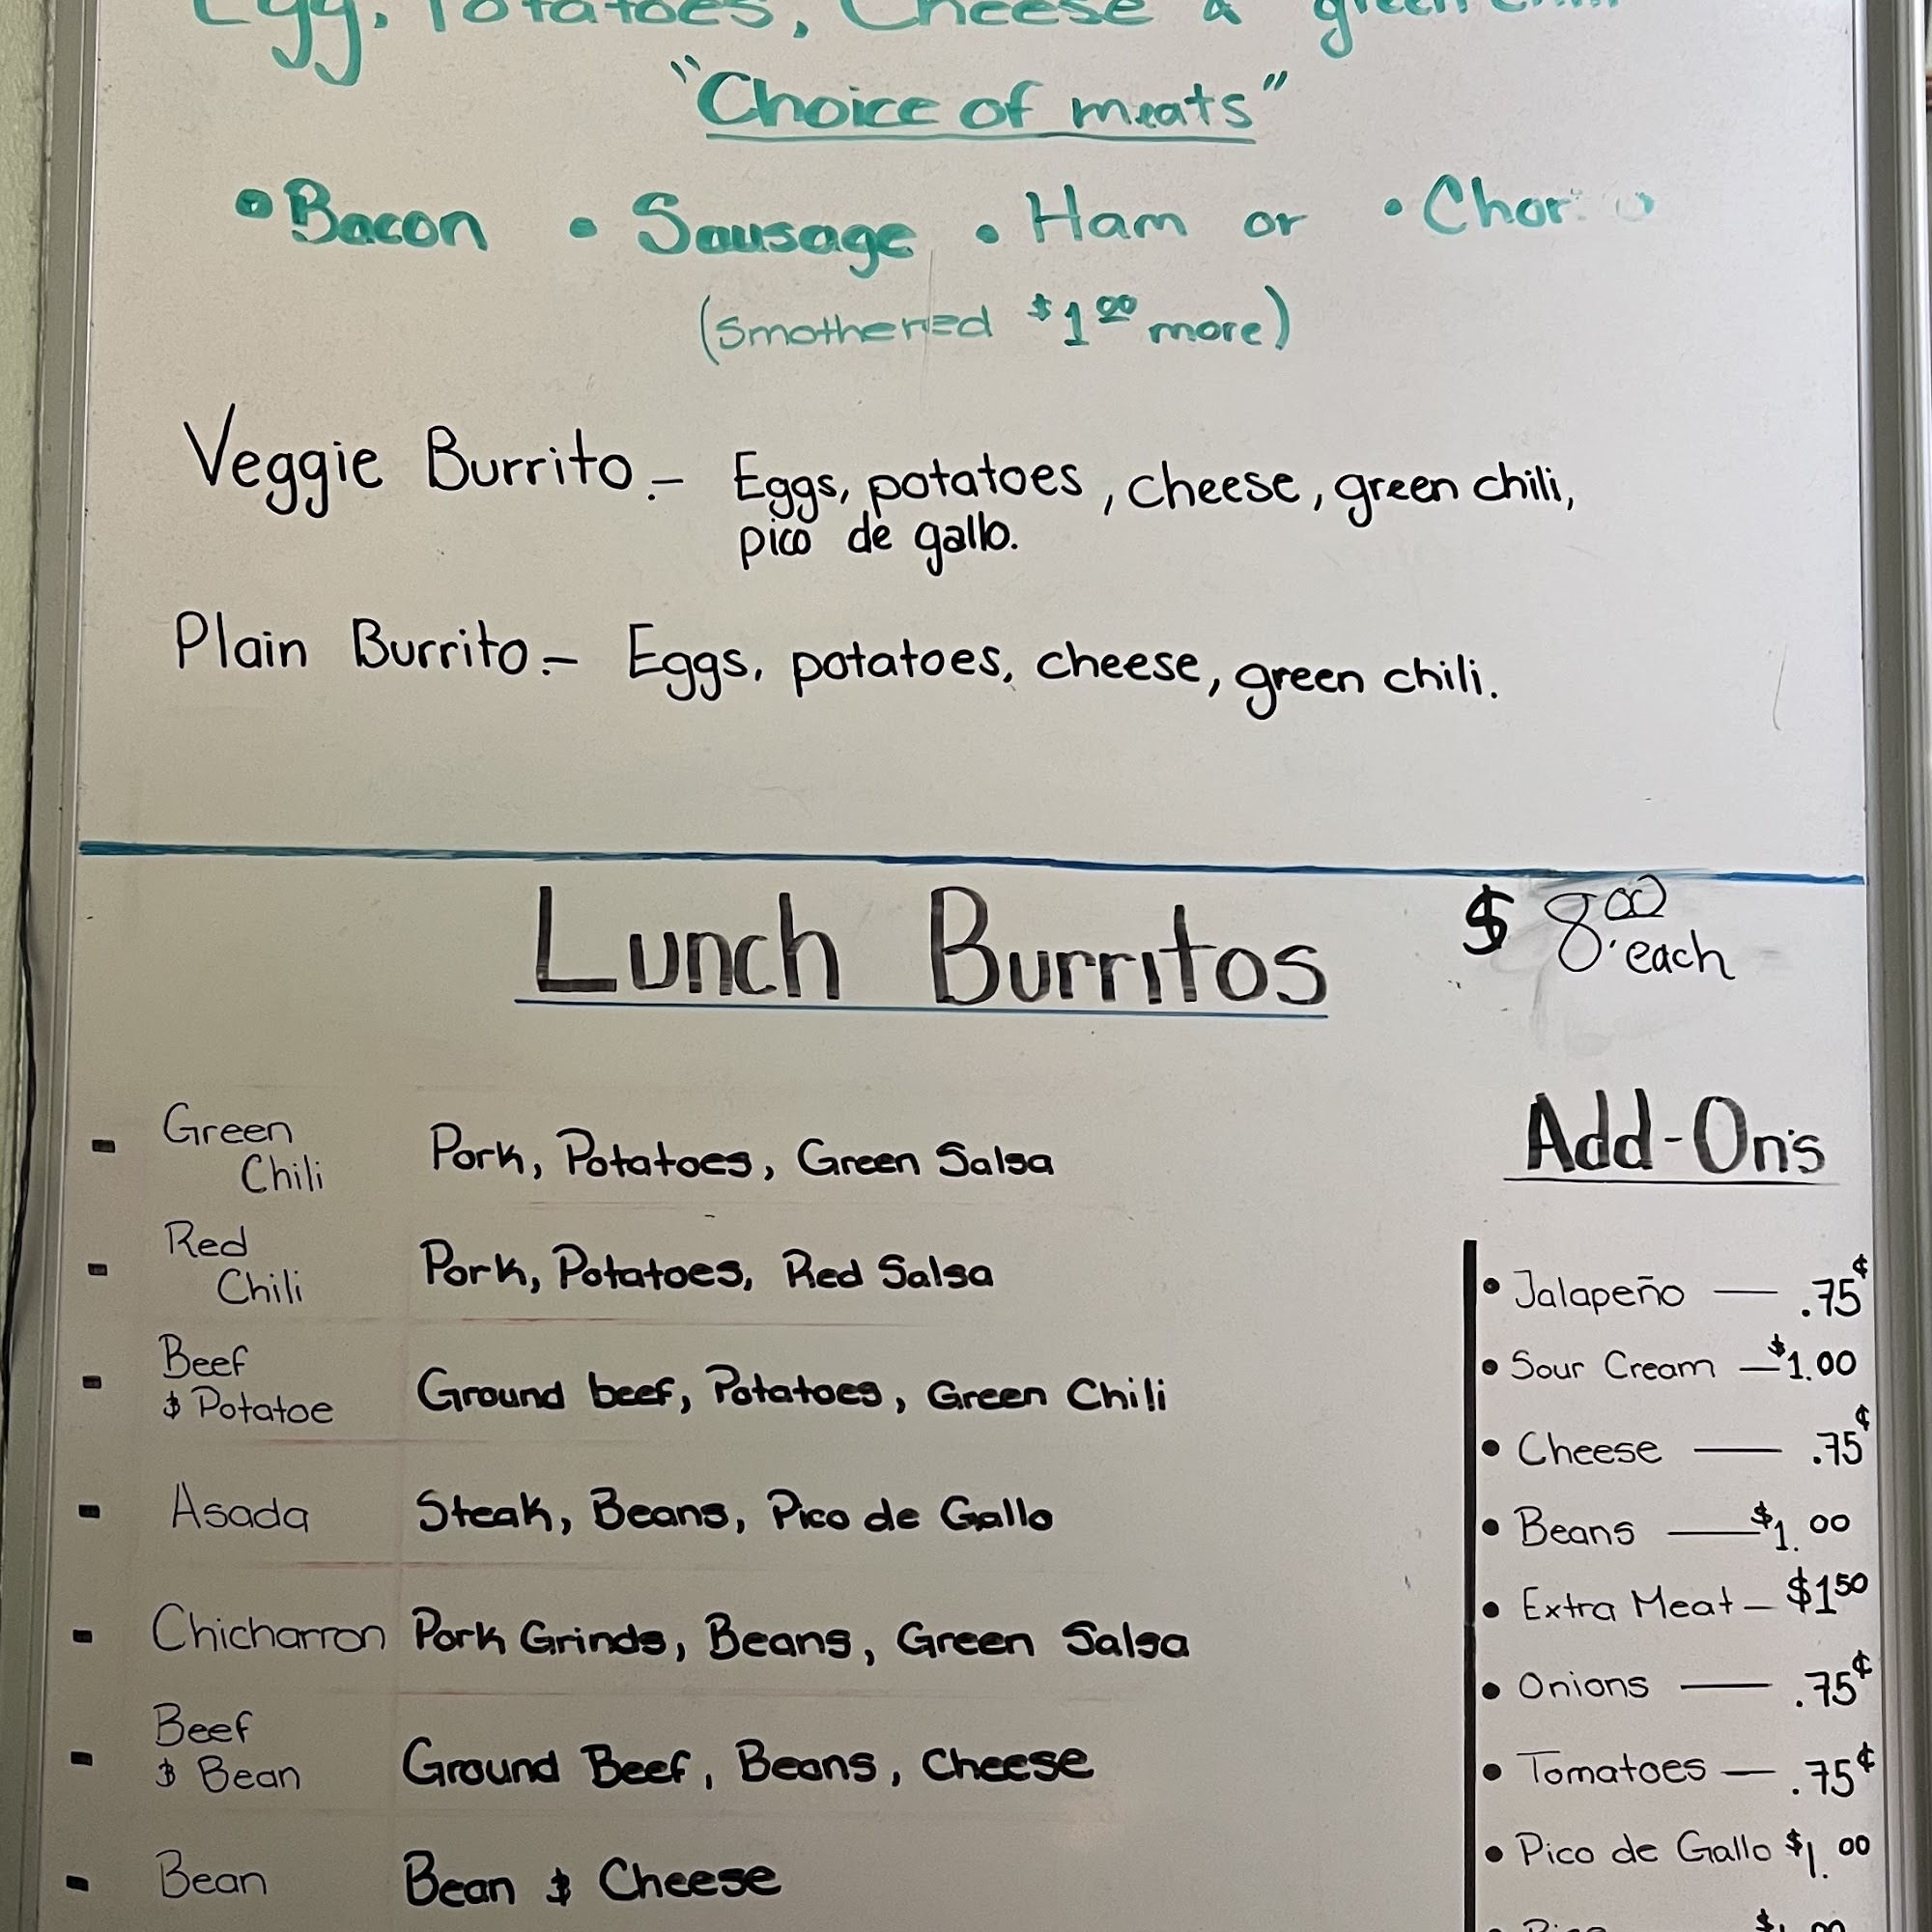 Egg, Potatoes, Cheese & green chili
"Choice of meats"
• Bacon • Sausage • Ham or •
(Smothered $1.00 more)
Veggie Burrito.- Eggs, potatoes, cheese, green chili,
pico de gallo.
Plain Burrito.- Eggs, potatoes, cheese, green chili.
Lunch Burritos $ 8.00 each
- Green Chili Pork, Potatoes, Green Salsa
- Red Chili Pork, Potatoes, Red Salsa
- Beef $ Potatoe Ground beef, Potatoes, Green Chili
- Asada Steak, Beans, Pico de Gallo
- Chicharron Pork Grinds, Beans, Green Salsa
- Beef $ Bean Ground Beef, Beans, Cheese
- Bean Bean $ Cheese
Add-On's
• Jalapeño — .75¢
• Sour Cream — $1.00
• Cheese — .75¢
• Beans — $1.00
• Extra Meat — $1.50
• Onions — .75¢
• Tomatoes — .75¢
• Pico de Gallo $1.00